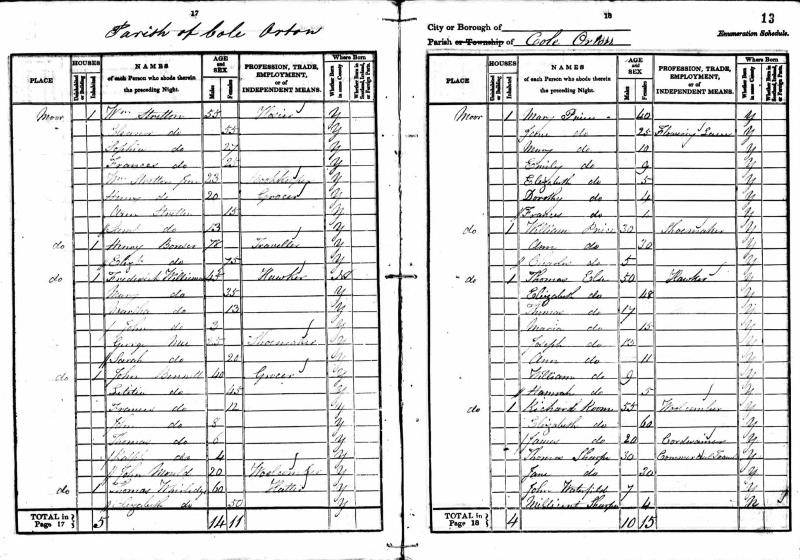 17
Parish of Cole Orton
PLACE
HOUSES
Uninhabited or Building
Inhabited
NAMES
of each Person who abode therein
the preceding Night.
AGE
and
SEX
Males
Females
PROFESSION, TRADE,
EMPLOYMENT,
or of
INDEPENDENT MEANS.
Where Born
Whether Born in same County
Whether Born in Scotland, Ireland, or Foreign Parts.
Moor 1 Wm Stretton 55 Hosier Y
Eleanor do 55 Y
Sophia do 27 Y
Frances do 25 Y
Wm Stretton Jun 23 Y
Henry do 20 Grocer Y
Ann Stretton 15 Y
do 13 Y
do 1 Henry Bonser 78 Traveller Y
Elizth do 75 Y
do 1 Frederick Williamson 45 Hawker
Mary do 35 Y
Martha do 13 Y
John do 2 Y
George 25 Shoemaker Y
Sarah do 20 Y
do 1 John Bennett 40 Grocer Y
Letitia do 45 Y
Frances do 12 Y
do 8 Y
Thomas do 6 Y
do 4 Y
John Mould 20 Woolcomber Y
do 1 Thomas 60 Hatter Y
Elizabeth do 50 Y
TOTAL in
Page 17
5 14 11
18
13
City or Borough of
Parish or Township of Cole Orton
Enumeration Schedule.
PLACE
HOUSES
Uninhabited or Building
Inhabited
NAMES
of each Person who abode therein
the preceding Night.
AGE
and
SEX
Males
Females
PROFESSION, TRADE,
EMPLOYMENT,
or of
INDEPENDENT MEANS.
Where Born
Whether Born in same County
Whether Born in Scotland, Ireland, or Foreign Parts.
Moor 1 Mary Price 40 Y
Jane do 25 Y
Mary do 10 Y
Emily do 9 Y
Elizabeth do 5 Y
Dorothy do 4 Y
Frances do 1 Y
do 1 William Price 30 Shoemaker Y
Ann do 20 Y
Charles do 5 Y
do 1 Thomas 50 Hawker Y
Elizabeth do 48 Y
Thomas do 17 Y
Maria do 15 Y
Joseph do 13 Y
Ann do 11 Y
William do 9 Y
Hannah do 5 Y
do 1 Richard Room 55 Woolcomber Y
Elizabeth do 60 Y
James do 20 Cordwainer Y
Thomas Sharpe 30 Y
Jane do 30 Y
John 7 Y
Millicent Sharpe 4
TOTAL in
Page 18
4 10 15